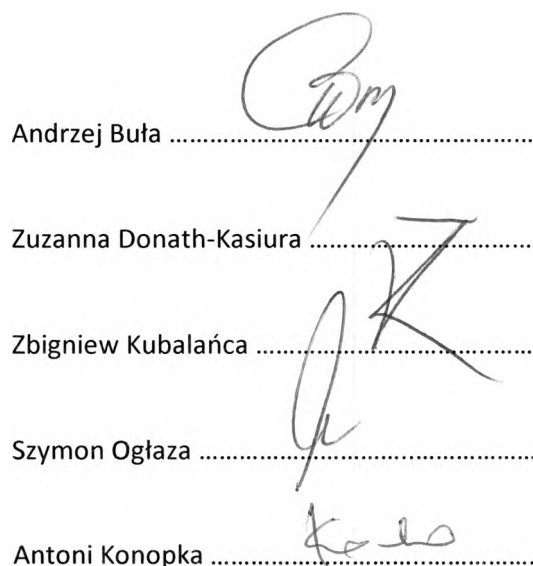 Andrzej Buła ..........................................
Zuzanna Donath-Kasiura ..........................
Zbigniew Kubalańca ................................
Szymon Ogłaza .......................................
Antoni Konopka .....................................